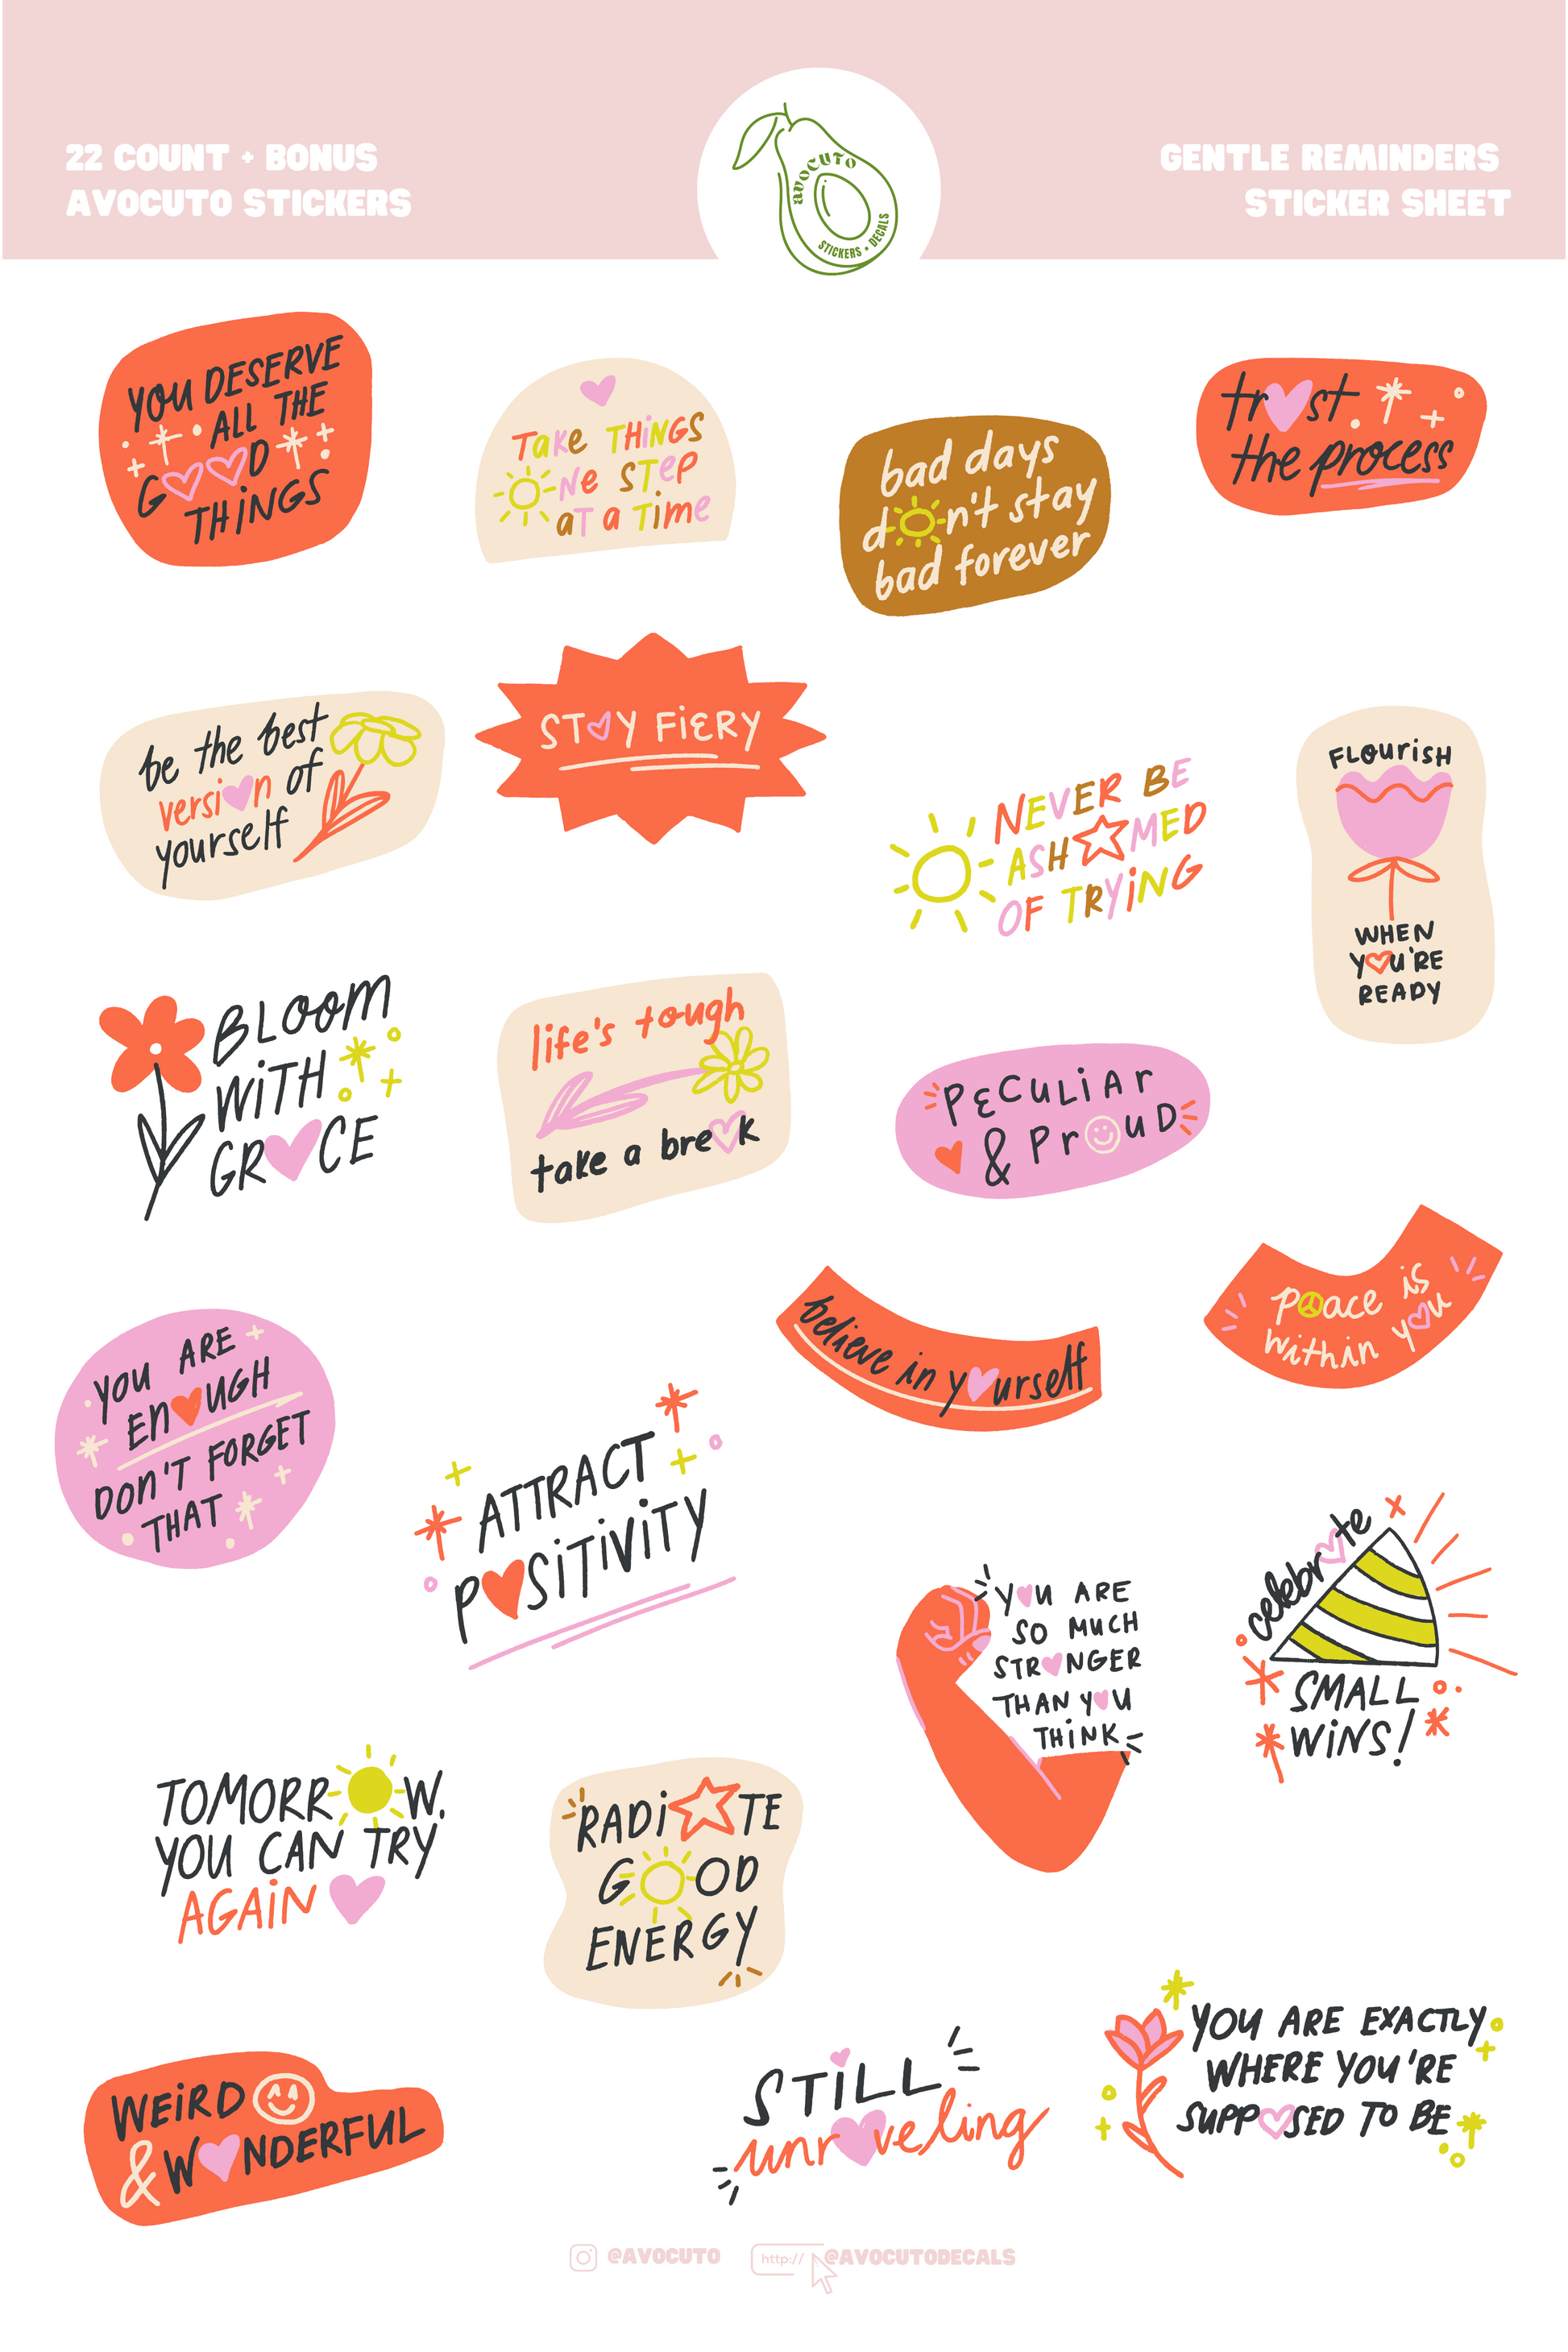 22 COUNT + BONUS
AVOCUTO STICKERS
AVOCUTO
STICKERS • DECALS
GENTLE REMINDERS
STICKER SHEET
YOU DESERVE
ALL THE
G♡♡D
THiNGS
TaKe THiNGS
☀Ne STeP
aT a Time
bad days
d☀n't stay
bad forever
tr♥st
the process
be the best
versi♥n of
yourself
ST♡Y FiERY
NEVER BE
ASH☆MED
OF TRYiNG
FLOUriSH
WHEN
Y♡U'RE
READY
BLOOM
WiTH
GR♥CE
life's tough
take a bre♡k
PECULiAr
& Pr☺uD
YOU ARE
En♥UGH
DOn'T FORGET
THAT
believe in y♥urself
p☮ace is
within y♡u
ATTRACT
P♥SiTiViTY
celebr♡te
SMALL
WiNS!
Y♥U ARE
SO MUCH
STR♥NGER
THAN Y♥U
THiNK
TOMORR☀W.
YOU CAN TRY
AGAiN ♥
RADi☆TE
G☀OD
ENERGY
WEiRD ☺
& W♥NDERFUL
STiLL
unr♥veling
YOU ARE EXACTLY
WHERE YOU'RE
SUPP♡SED TO BE
@AVOCUTO
http:// @AVOCUTODECALS